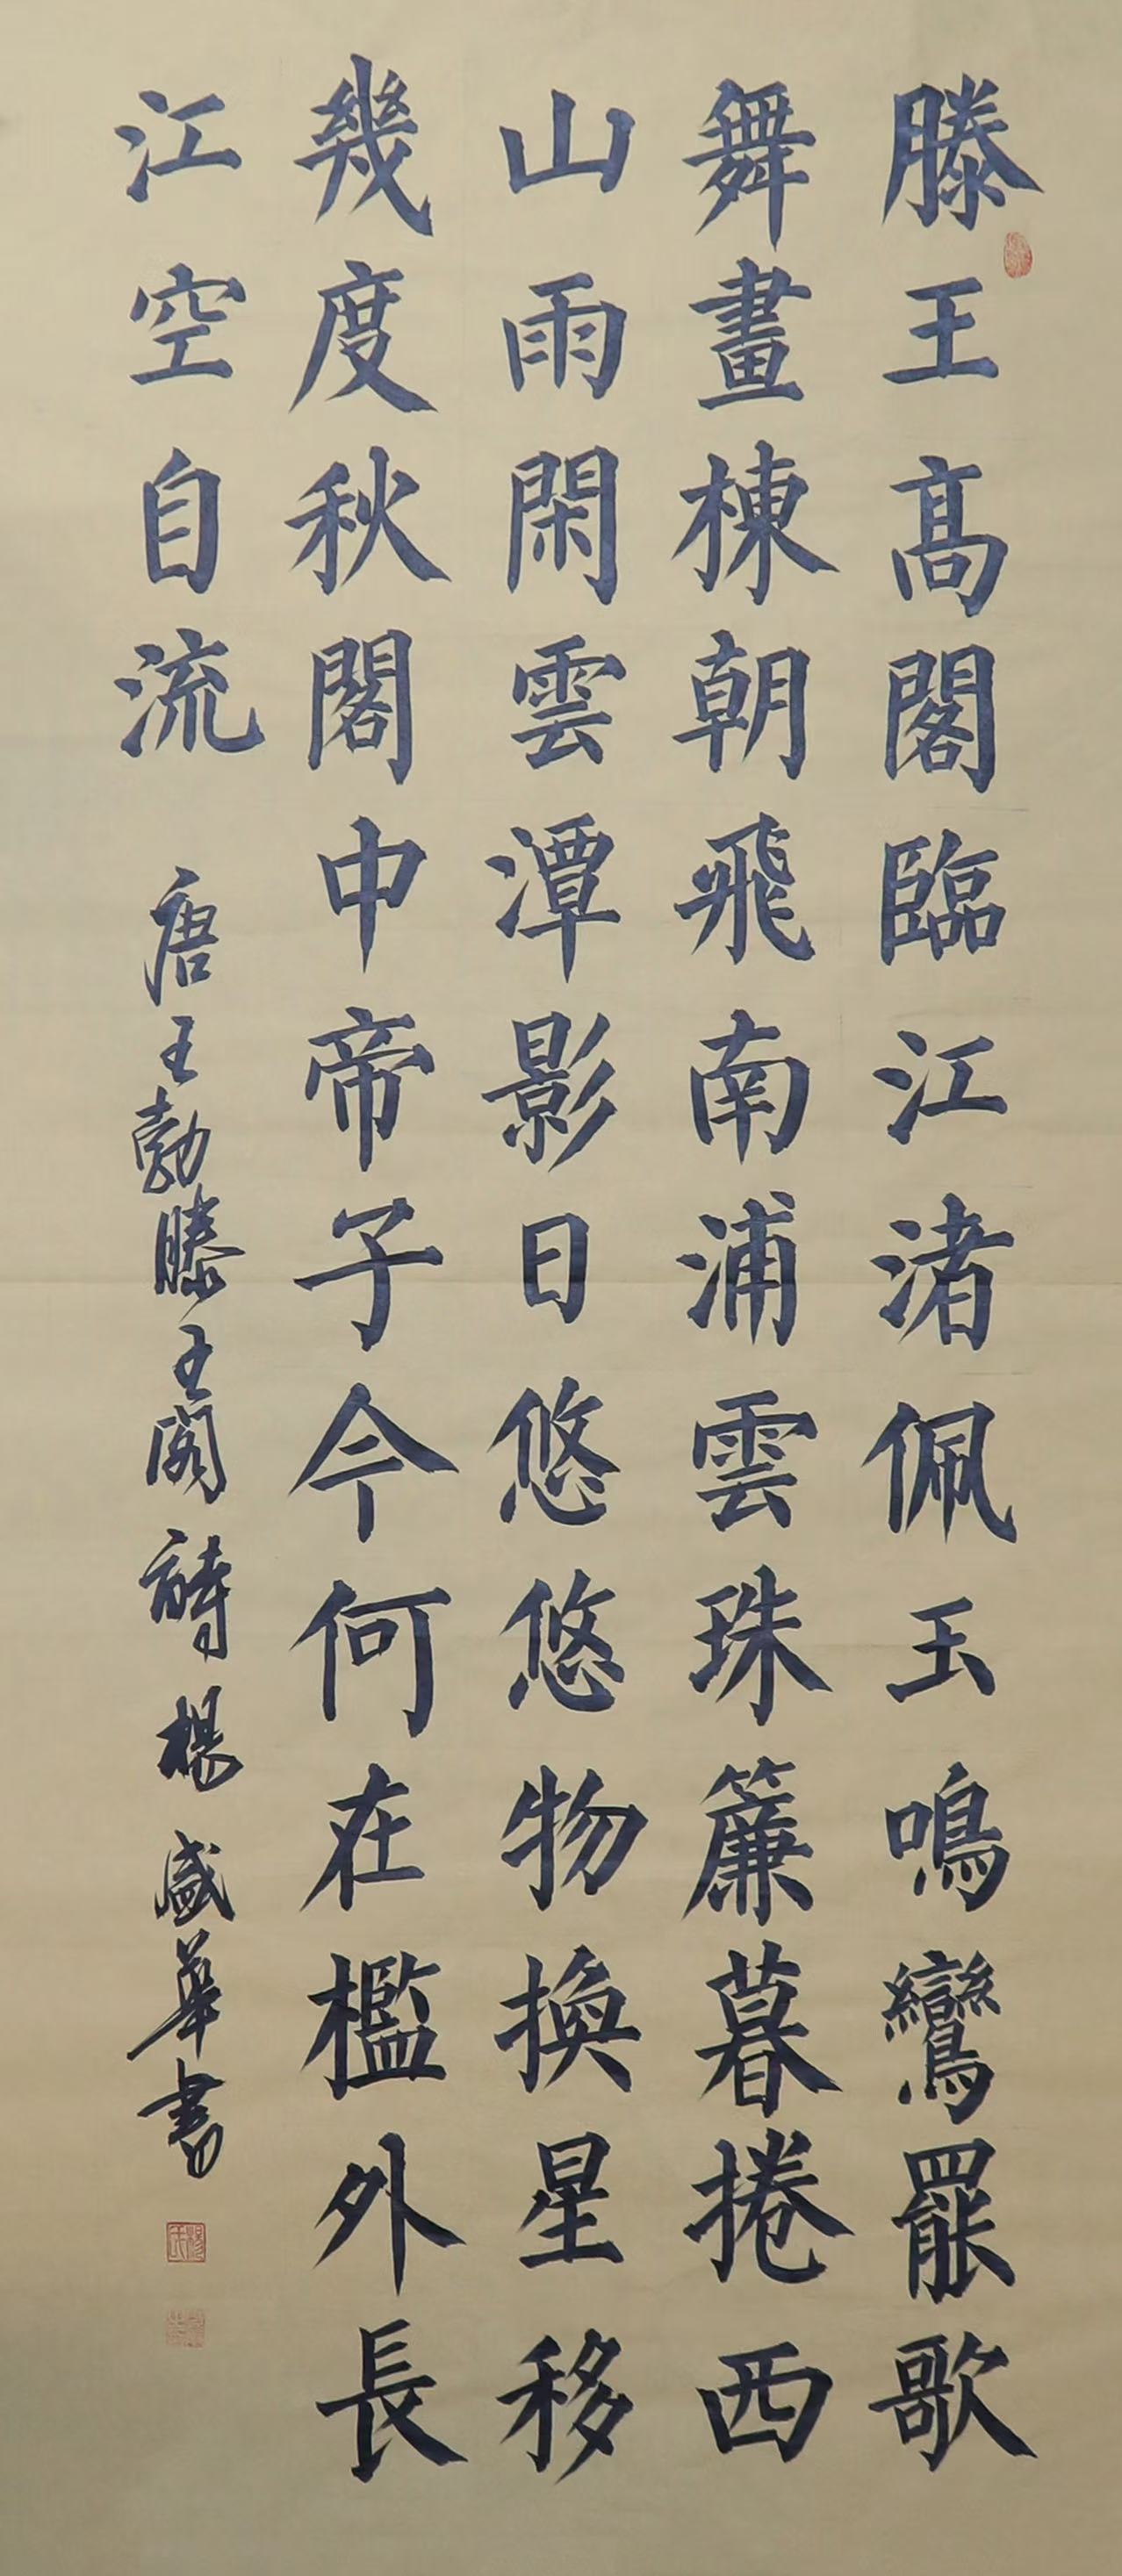 滕王高閣臨江渚佩玉鳴鸞罷歌
舞畫棟朝飛南浦雲珠簾暮捲西
山雨閑雲潭影日悠悠物換星移
幾度秋閣中帝子今何在檻外長
江空自流 唐王勃滕王閣詩 楊盛華書